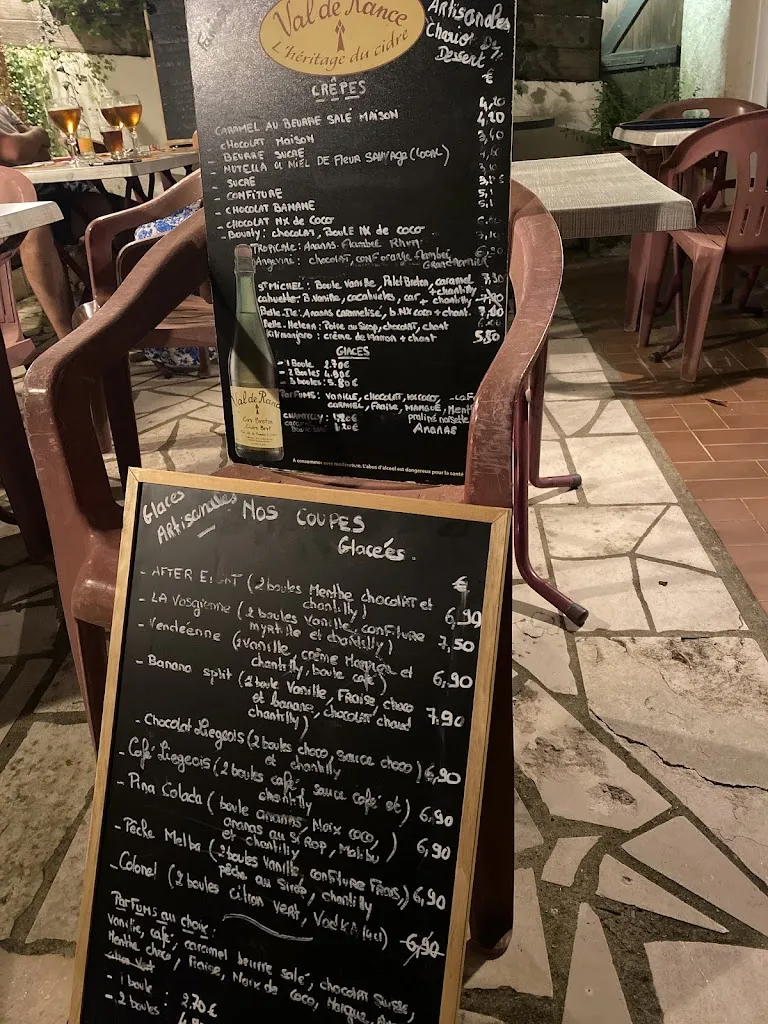 Val de Rance
L'héritage du cidre
Artisanales
Chariot De
Dessert
€
CRÊPES
CARAMEL AU BEURRE SALÉ MAISON 4,20
- CHOCOLAT MAISON 4,20
- BEURRE SUCRE 3,40
- NUTELLA OU MIEL DE FLEUR SAUVAGE (LOCAL)
- SUCRE
- CONFITURE
- CHOCOLAT BANANE 5,1
- CHOCOLAT NX de COCO 5,1
- Bounty: chocolat, Boule NX de coco
TROPICALE: Ananas flambée Rhum
chocolat, conf orange flambée 6,90
GRAND MARNIER
ST MICHEL: Boule Vanille, Palet Breton, caramel 7,30
+ chantilly
cahuette: B. vanille, cacahuetes, car + chantilly
Belle-Ile: Ananas caramélisé, b. NX coco + chant.
Belle-Helena: Poire au Sirop, chocolat, chant
Kilimanjaro: crème de Marron + chant 5,50
GLACES
- 1 Boule 2.70€
- 2 Boules 4.80€
- 3 boules: 5.80€
PARFUMS: VANILLE, CHOCOLAT,
CARAMEL, FRAISE, MANGUE, Menthe
praliné noisette
CHANTILLY: 1,20€
1,20€
ANANAS
Val de Rance
Cru Breton
Cidre Brut
A consommer avec modération. L'abus d'alcool est dangereux pour la santé
Glaces
Artisanales
NOS COUPES
Glacées.
€
- AFTER EIGHT (2 boules Menthe chocolat et
chantilly) 6,90
- LA Vosgienne (2 boules Vanille, confiture
myrtille et chantilly) 7,50
- Vendéenne (2 vanille, crème Marrons et
chantilly, boule café) 6,90
- Banana split (2 boule Vanille, Fraise, choco
et banane, chocolat chaud
chantilly) 7,90
- Chocolat Liegeois (2 boules choco, sauce choco)
et chantilly 6,90
- Café Liegeois (2 boules café, sauce café et)
chantilly 6,90
- Pina Colada (boule ananas, Noix coco,
ananas au SIROP, Malibu)
et chantilly 6,90
- Pêche Melba (2 boules Vanille, confiture Frais,)
pêche au Sirop, chantilly 6,90
- Colonel (2 boules citron vert, Vodka (4cl) 6,90
Parfums au choix:
Vanille, café, caramel beurre salé, chocolat Suisse,
Menthe choco, Fraise, Noix de Coco, Mangue,
citron vert
- 1 boule : 2.70€
- 2 boules :